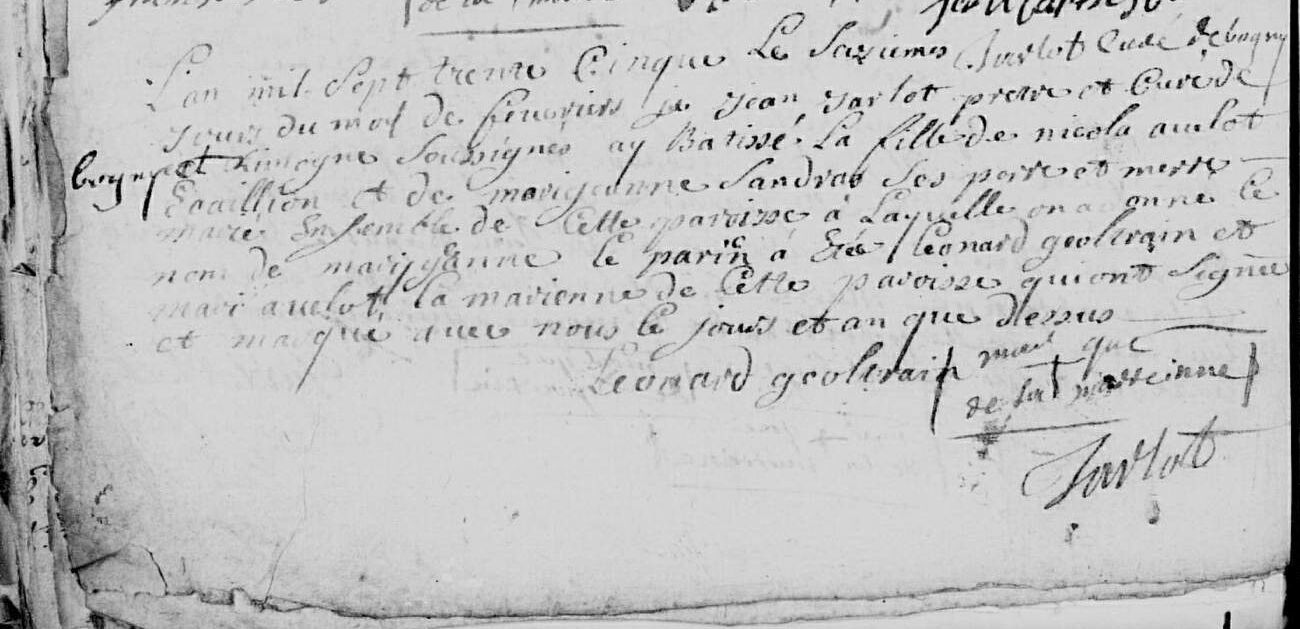 de la
L'an mil sept trente Cinque Le Sazieme Jarlot Curé de bogny
jours du mois de feuvriers je jean jarlot pretre et Curé de
bogny et Rimogne soussignés ay Batissé La fille de nicola auelot
Ecaillion et de marigeanne Sandras ses perre et merre
marié ensemble de Cette paroisse à Laquelle on a donne Le
nom de marigeanne le parin à Etée Leonard geoltrain et
mari auelot la marienne de Cette paroisse qui ont signée
et marqué avec nous le jours et an que dessus
Leonard geoltrain
marque
de la marreinne
Jarlot